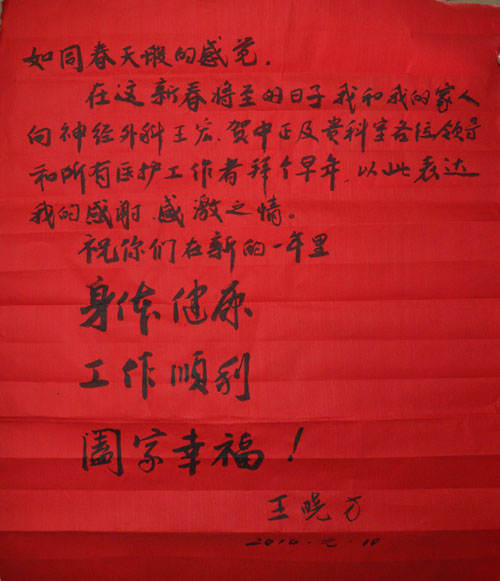 如同春天般的感觉.
在这新春将至的日子我和我的家人
向神经外科王宏.贺中正及贵科室各位领导
和所有医护工作者拜个早年,以此表达
我的感谢.感激之情。
祝你们在新的一年里
身体健康
工作顺利
阖家幸福!
王晓方
2014.元.18